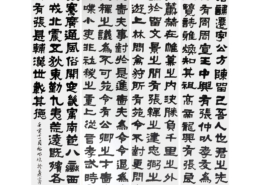 諱遷字公方陳留己吾人也君之先
有周周宣王中興有張仲以孝友為
覽詩雅煥知其祖高帝龍興有張良
籌策在帷幕之內決勝負千里之外
於留文景之間有張釋之建忠弼
遊上林問禽狩所有苑令不對更問
嗇夫事對於是進嗇夫為令令退為
夫釋之議為不可苑令有公卿之才
喋小吏非社稷之重上從言孝武時
張騫廣通風俗開定畿寓南苞八蠻西
戎北震五狄東勤九夷荒遠既殯各
有張是輔漢世載其德